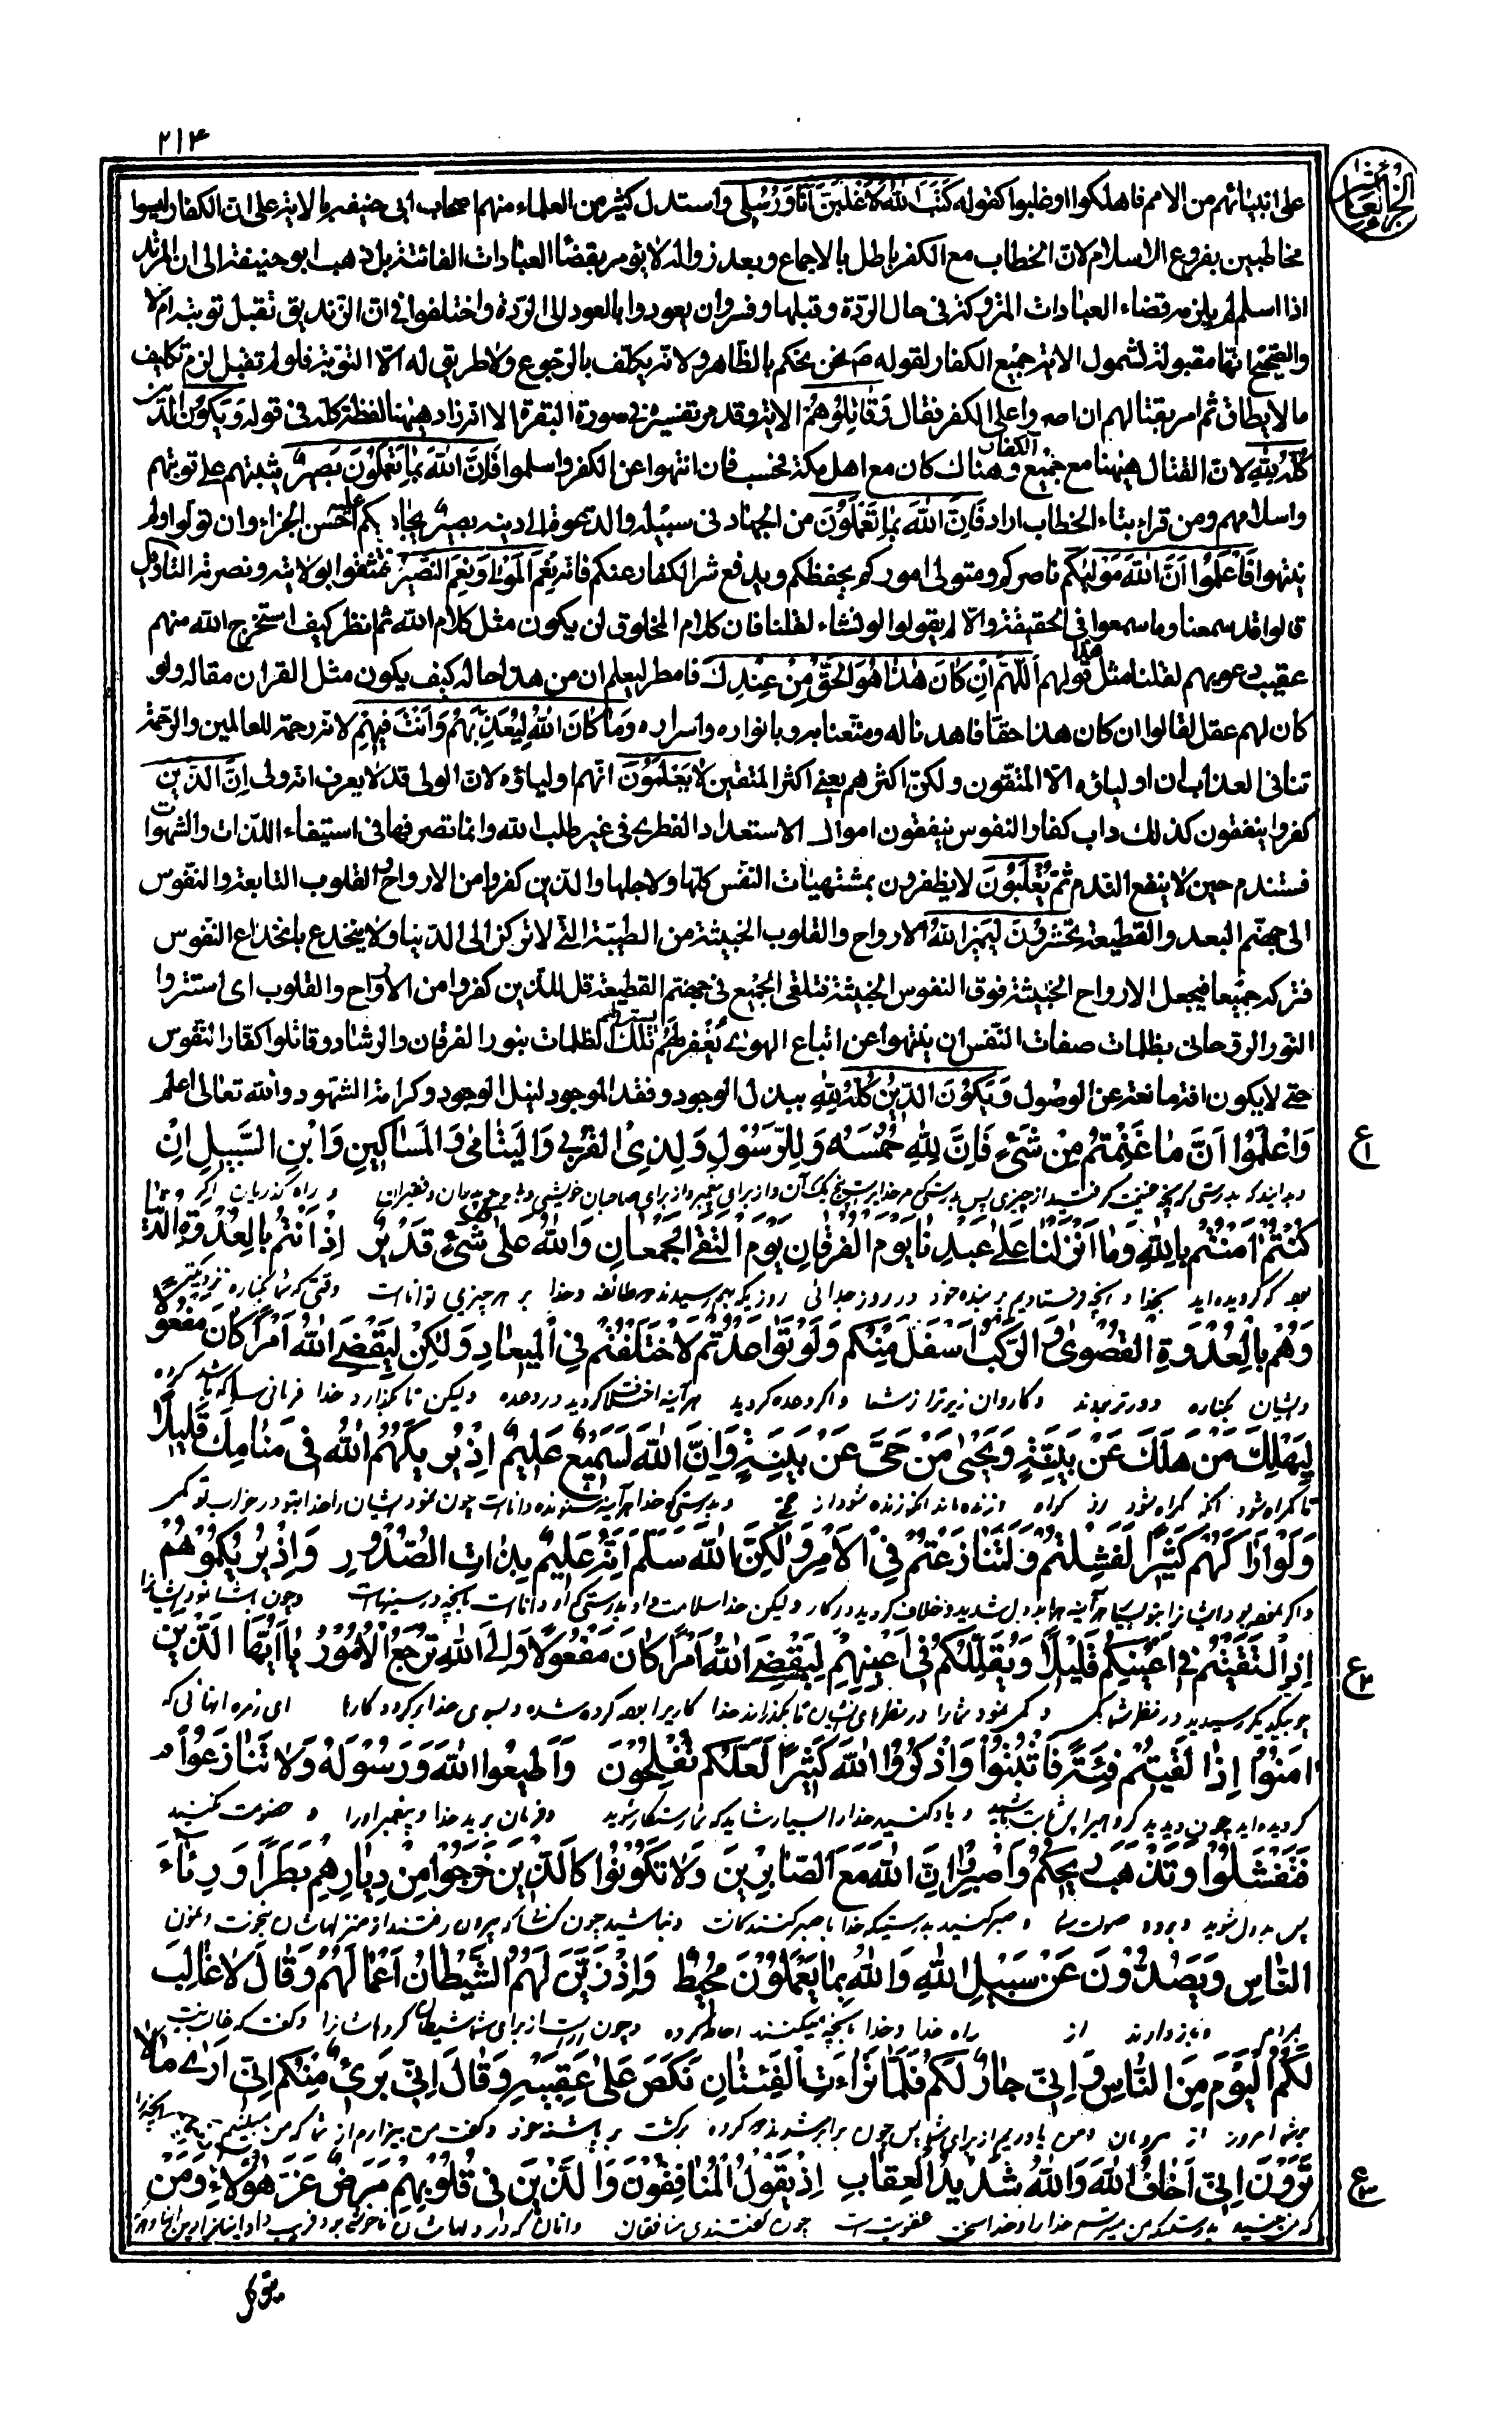 ٢١٤
الجزء العاشر
على انبيائهم من الامم فاهلكوا او غلبوا كقوله كتب الله لاغلبن انا ورسلى واستدل كثير من العلماء منهم اصحاب ابى حنيفة بالاية على ان الكفار ليسوا
مخاطبين بفروع الاسلام لان الخطاب مع الكفر باطل بالاجماع وبعد زواله لا يؤمر بقضاء العبادات الفائتة بل ذهب ابو حنيفة الى ان المرتد
اذا اسلم لم يلزمه قضاء العبادات المتروكة فى حال الردة وقبلها وفسر وان يعودوا بالعود الى الردة واختلفوا فى ان الزنديق تقبل توبته ام لا
والصحيح انها مقبولة لشمول الاية جميع الكفار لقوله ص نحن نحكم بالظاهر ولانه يكلف بالرجوع ولا طريق له الا التوبة فلو لم تقبل لزم تكليف
ما لا يطاق ثم امر بقتالهم ان اصروا على الكفر فقال وَقَاتِلُوهُمْ الاية وقد مر تفسيره فى سورة البقرة الا انه زاد ههنا لفظة كله فى قوله وَيَكُونَ الدِّينُ
كُلُّهُ لِلَّهِ لان القتال ههنا مع جميع الكفار وهناك كان مع اهل مكة فحسب فان انتهوا عن الكفر واسلموا فَإِنَّ اللهَ بِمَا يَعْمَلُونَ بَصِيرٌ يثيبهم على توبتهم
واسلامهم ومن قراء بتاء الخطاب اراد فَإِنَّ اللهَ بِمَا تَعْمَلُونَ من الجهاد فى سبيله والدعوة الى دينه بصير يجازيكم عليه احسن الجزاء وان تولوا ولم
ينتهوا فَاعْلَمُوا أَنَّ اللهَ مَوْلَيكُمْ ناصركم ومتولى اموركم يحفظكم ويدفع شر الكفار عنكم فانه نِعْمَ الْمَوْلَى وَنِعْمَ النَّصِيرُ فثقوا بولايته ونصرته التاويل
قالوا قد سمعنا وما سمعوا فى الحقيقة والا لم يقولوا لو نشاء لقلنا فان كلام المخلوق لن يكون مثل كلام الله ثم انظر كيف استخرج الله منهم
عقيب دعويهم لقلنا مثل هذا قولهم اللَّهُمَّ إِنْ كَانَ هٰذَا هُوَ الْحَقَّ مِنْ عِنْدِكَ فامطر ليعلم ان من هذا حاله كيف يكون مثل القران مقاله ولو
كان لهم عقل لقالوا ان كان هذا حقا فاهدنا له ومتعنا به وبانواره واسراره وَمَا كَانَ اللهُ لِيُعَذِّبَهُمْ وَأَنْتَ فِيهِمْ لانه رحمة للعالمين والرحمة
تنافى العذاب ان اولياؤه الا المتقون ولكن اكثرهم يعنى اكثر المتقين لا يَعْلَمُونَ انهم اولياؤه لان الولى قد لا يعرف انه ولى إِنَّ الَّذِينَ
كفروا ينفقون كذلك داب كفار النفوس ينفقون اموال الاستعداد الفطرى فى غير طلب الله وانما تصرفها فى استيفاء اللذات والشهوات
فستندم حين لا ينفع الندم ثُمَّ يُغْلَبُونَ لا يظفرون بمشتهيات النفس كلها ولاجلها والذين كفروا من الارواح والقلوب التابعة والنفوس
الى جهنم البعد والقطيعة يُحْشَرُونَ لِيَمِيزَ اللهُ الارواح والقلوب الخبيثة من الطيبة التى لا تركن الى الدنيا ولا ينخدع بانخداع النفوس
فتركمه جميعا فيجعل الارواح الخبيثة فوق النفوس الخبيثة فتلقى الجميع فى جهنم القطيعة قل للذين كفروا من الارواح والقلوب اى استتروا
النور الروحانى بظلمات صفات النفس ان ينتهوا عن اتباع الهوى يُغْفَرْ لَهُمْ تلك الظلمات بنور الفرقان والرشاد وقاتلوا كفار النفوس
حتى لا يكون افة مانعة عن الوصول وَيَكُونَ الدِّينُ كُلُّهُ لِلَّهِ ببذل الوجود وفقد الموجود لنيل الوجود وكرامة الشهود والله تعالى اعلم
وَاعْلَمُوا أَنَّ مَا غَنِمْتُمْ مِنْ شَيْءٍ فَإِنَّ لِلَّهِ خُمُسَهُ وَلِلرَّسُولِ وَلِذِي الْقُرْبَى وَالْيَتَامَى وَالْمَسَاكِينِ وَابْنِ السَّبِيلِ إِنْ
ع١
بدانيد كه بدرستى كه آنچه غنيمت گرفتيد از چيزى پس بدرستى مر خدا راست پنج يك آن و از براى پيغمبر و از براى صاحبان خويشى و فقيران و راه گذريان اگر
كُنْتُمْ آمَنْتُمْ بِاللَّهِ وَمَا أَنْزَلْنَا عَلَى عَبْدِنَا يَوْمَ الْفُرْقَانِ يَوْمَ الْتَقَى الْجَمْعَانِ وَاللَّهُ عَلَى كُلِّ شَيْءٍ قَدِيرٌ إِذْ أَنْتُمْ بِالْعُدْوَةِ الدُّنْيَا
گرويده ايد بخدا و آنچه فرستاديم بر بنده خود در روز جدائى روزيكه بهم رسيدند دو طائفه و خدا بر هر چيزى تواناست وقتى كه شما بكناره نزديكتر
وَهُمْ بِالْعُدْوَةِ الْقُصْوَى وَالرَّكْبُ أَسْفَلَ مِنْكُمْ وَلَوْ تَوَاعَدْتُمْ لَاخْتَلَفْتُمْ فِي الْمِيعَادِ وَلَكِنْ لِيَقْضِيَ اللهُ أَمْرًا كَانَ مَفْعُولًا
وايشان بكناره دورتر بودند و كاروان زيرتر از شما و اگر وعده كرديد هر آينه اختلاف كرديد در وعده وليكن تا بگذارد خدا فرمانى را كه باشد كرده
لِيَهْلِكَ مَنْ هَلَكَ عَنْ بَيِّنَةٍ وَيَحْيَى مَنْ حَيَّ عَنْ بَيِّنَةٍ وَإِنَّ اللهَ لَسَمِيعٌ عَلِيمٌ إِذْ يُرِيكَهُمُ اللهُ فِي مَنَامِكَ قَلِيلًا
تا گمراه شود آنكه گمراه شود از گواه و زنده ماند آنكه زنده شود از حجت و بدرستى كه خدا هر آينه شنونده داناست چون نمود ايشان را خدا بتو در خواب تو كمى
وَلَوْ أَرَاكَهُمْ كَثِيرًا لَفَشِلْتُمْ وَلَتَنَازَعْتُمْ فِي الْأَمْرِ وَلَكِنَّ اللهَ سَلَّمَ إِنَّهُ عَلِيمٌ بِذَاتِ الصُّدُورِ وَإِذْ يُرِيكُمُوهُمْ
و اگر نموده بود ايشانرا بتو بسيار هر آينه بددل شديد و خلاف كرديد در كار وليكن خدا سلامت داد بدرستى كه او داناست بآنچه در سينهاست و چون بشما نمود ايشانرا
إِذِ الْتَقَيْتُمْ فِي أَعْيُنِكُمْ قَلِيلًا وَيُقَلِّلُكُمْ فِي أَعْيُنِهِمْ لِيَقْضِيَ اللهُ أَمْرًا كَانَ مَفْعُولًا وَإِلَى اللهِ تُرْجَعُ الْأُمُورُ يَا أَيُّهَا الَّذِينَ
ع٢
چو بيكديگر رسيديد در نظر شما كمى و كم نمود شما را در نظرهاى ايشان تا بگذراند خدا كاريرا كرده شده و بسوى خدا برگردد كارها اى زمره آنانى كه
آمَنُوا إِذَا لَقِيتُمْ فِئَةً فَاثْبُتُوا وَاذْكُرُوا اللهَ كَثِيرًا لَعَلَّكُمْ تُفْلِحُونَ وَأَطِيعُوا اللهَ وَرَسُولَهُ وَلَا تَنَازَعُوا
گرويده ايد چون ديديد گروهيرا پس ثابت باشيد و ياد كنيد خدا را بسيار شايد كه شما رستگار شويد و فرمان بريد خدا و پيغمبر اورا و خصومت نكنيد
فَتَفْشَلُوا وَتَذْهَبَ رِيحُكُمْ وَاصْبِرُوا إِنَّ اللهَ مَعَ الصَّابِرِينَ وَلَا تَكُونُوا كَالَّذِينَ خَرَجُوا مِنْ دِيَارِهِمْ بَطَرًا وَرِئَاءَ
پس بددل شويد و برود صولت شما و صبر كنيد بدرستيكه خدا با صبر كنندگانست و نباشيد چون كسانى كه بيرون رفتند از منزلهاشان
النَّاسِ وَيَصُدُّونَ عَنْ سَبِيلِ اللهِ وَاللهُ بِمَا يَعْمَلُونَ مُحِيطٌ وَإِذْ زَيَّنَ لَهُمُ الشَّيْطَانُ أَعْمَالَهُمْ وَقَالَ لَا غَالِبَ
مردم و باز دارند از راه خدا و خدا بآنچه ميكنند احاطه كرده و چون آراست از براى ايشان شيطان كردهاشانرا و گفت كه غالب نيست
لَكُمُ الْيَوْمَ مِنَ النَّاسِ وَإِنِّي جَارٌ لَكُمْ فَلَمَّا تَرَاءَتِ الْفِئَتَانِ نَكَصَ عَلَى عَقِبَيْهِ وَقَالَ إِنِّي بَرِيءٌ مِنْكُمْ إِنِّي أَرَى مَا لَا
بر شما امروز از مردمان و من ياورم از براى شما پس چون برابر شدند دو گروه برگشت بر پاشنه خود و گفت من بيزارم از شما كه من ميبينم آنچه را
تَرَوْنَ إِنِّي أَخَافُ اللهَ وَاللهُ شَدِيدُ الْعِقَابِ إِذْ يَقُولُ الْمُنَافِقُونَ وَالَّذِينَ فِي قُلُوبِهِمْ مَرَضٌ غَرَّ هَؤُلَاءِ دِينُهُمْ وَمَنْ
ع٣
كه نمى بينيد بدرستيكه من ميترسم خدا را و خدا سخت عقوبت است چون گفتندى منافقان و آنان كه در دلهاشان ناخوشى بود فريب داد اينانرا دين
يتوكل